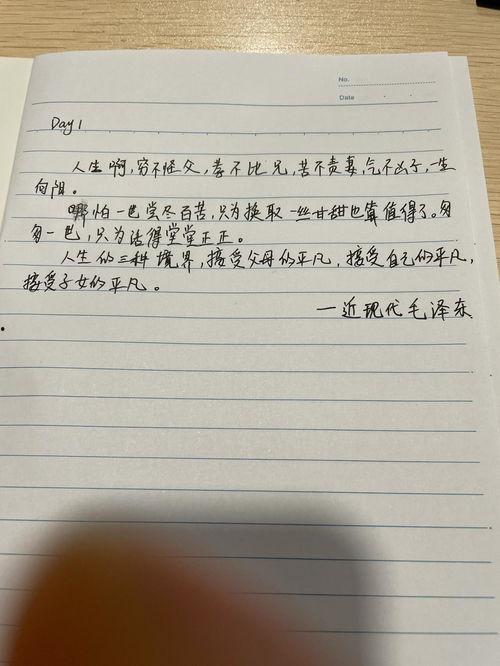 No.
Date
Day 1
人生啊,穷不怪父,孝不比兄,苦不责妻,气不凶子,一生
向阳。
哪怕一世尝尽百苦,只为换取一丝甘甜也算值得了。匆
匆一世,只为活得堂堂正正。
人生的三种境界,接受父母的平凡,接受自己的平凡,
接受子女的平凡。
—近现代毛泽东